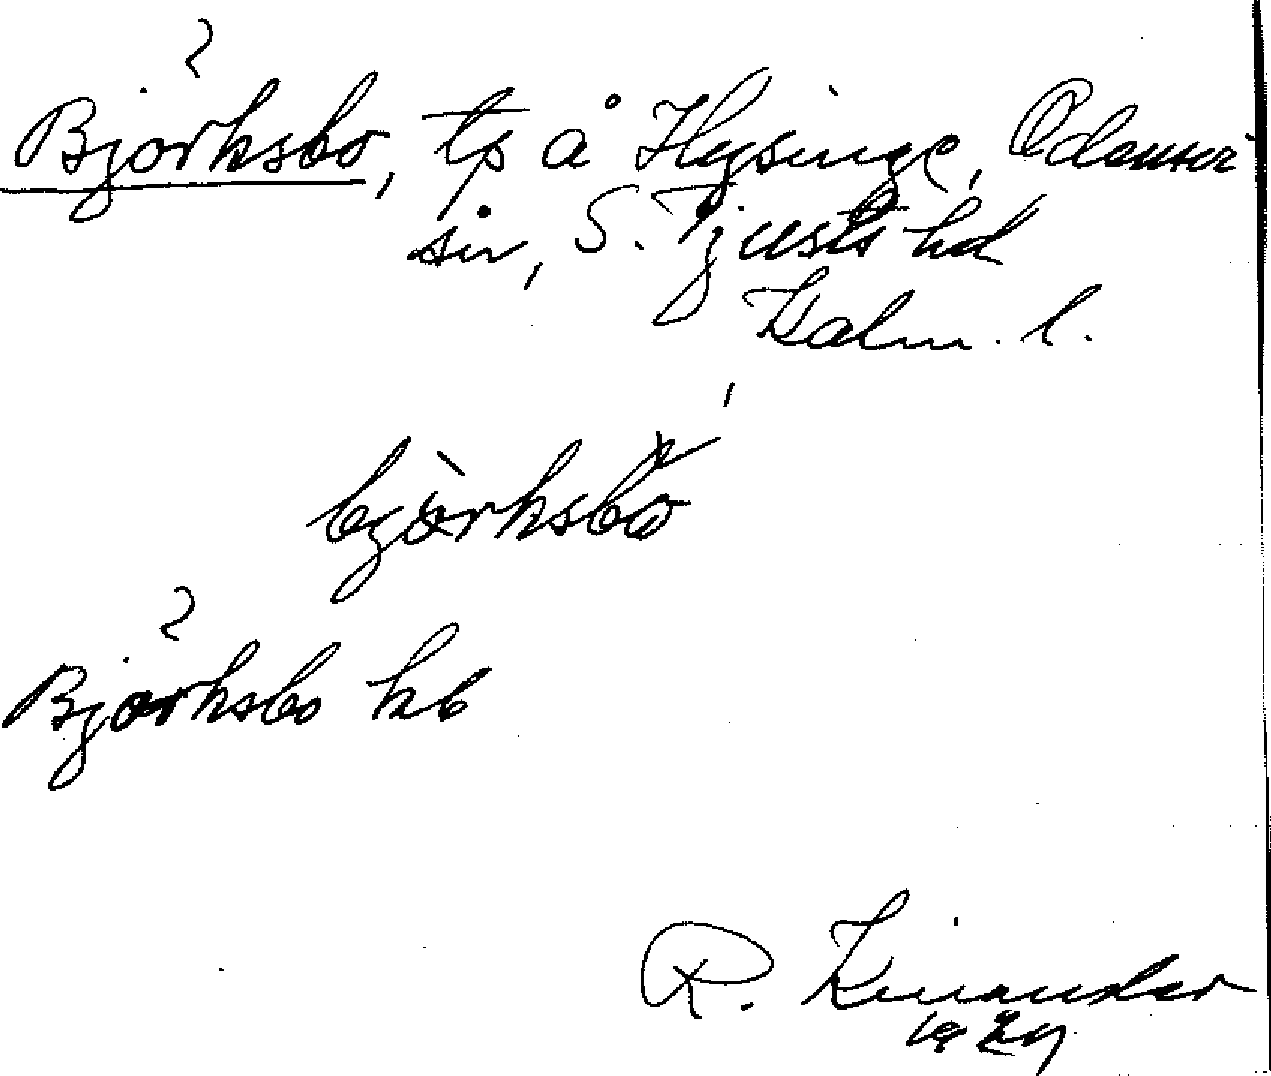 Björksbo, tp å Hysinge, Odensvi
sn, S. Tjusts hd
Kalm. l.
björksbo
Björksbo kb
R. Kinander
1929